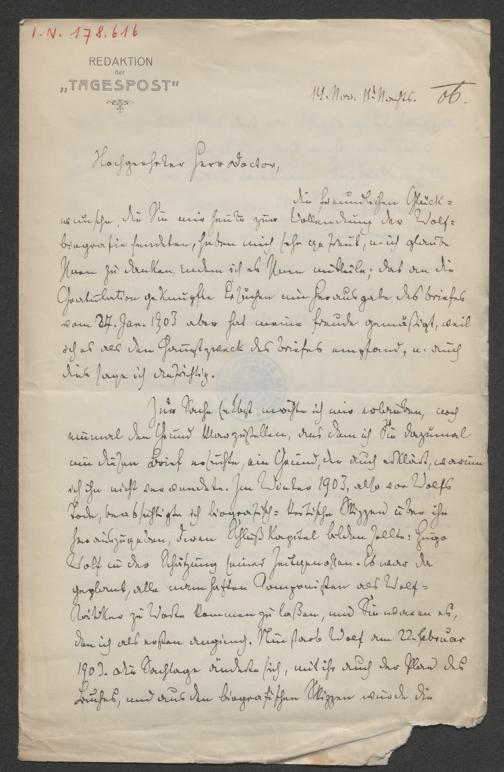 I. N. 178.616
REDAKTION
der
„TAGESPOST“
14. Nov. 11h Nachts. 06.
Hochgeehrter Herr Doctor,
die freundlichen Glück-
wünsche, die Sie mir heute zur Vollendung der Wolf-
biografie sendeten, haben mich sehr gefreut, u. ich glaube
Ihnen zu danken, indem ich es Ihnen mitteile; das an die
Gratulation geknüpfte Ersuchen um Herausgabe des Briefes
vom 27. Jan. 1903 aber hat meine Freude gemäßigt, weil
ich es als den Hauptzweck des Briefes empfand, u. auch
dies sage ich aufrichtig.
Zur Sache selbst möchte ich mir erlauben, noch
einmal den Grund klarzustellen, aus dem ich Sie dazumal
um diesen Brief ersuchte, ein Grund, der auch erklärt, warum
ich ihn nicht verwendete. Im Winter 1903, also vor Wolfs
Tode, beabsichtigte ich biografisch-kritische Skizzen über ihn
herauszugeben, deren Schlußkapitel bilden sollte: Hugo
Wolf in der Schätzung seiner Zeitgenossen. Es war da
geplant, alle namhaften Componisten als Wolf-
kritiker zu Worte kommen zu laßen, und Sie waren es,
den ich als ersten anging. Nun starb Wolf am 22. Februar
1903. Die Sachlage änderte sich, mit ihr auch der Plan des
Buches, und aus den biografischen Skizzen wurde die